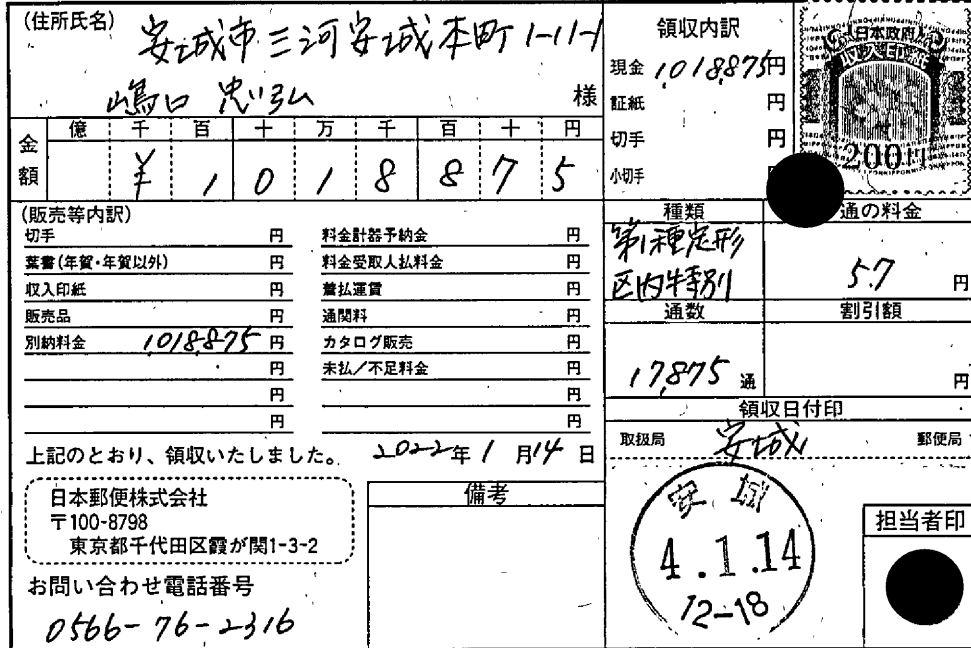 (住所氏名) 安城市三河安城本町1-11-1
嶋口 忠弘 様
金額 億 千 百 十 万 千 百 十 円
¥ 1 0 1 8 8 7 5
(販売等内訳)
切手 円
葉書(年賀・年賀以外) 円
収入印紙 円
販売品 円
別納料金 1,018,875 円
円
円
円
料金計器予納金 円
料金受取人払料金 円
着払運賃 円
通関料 円
カタログ販売 円
未払/不足料金 円
円
円
上記のとおり、領収いたしました。 2022年 1月 14日
日本郵便株式会社
〒100-8798
東京都千代田区霞が関1-3-2
お問い合わせ電話番号
0566-76-2316
備考
領収内訳
現金 1,018,875円
証紙 円
切手 円
小切手
日本政府
収入印紙
200円
種類
第1種定形
区内特別
通の料金
57 円
通数
17,875 通
割引額
円
領収日付印
取扱局 安城 郵便局
安城
4.1.14
12-18
担当者印